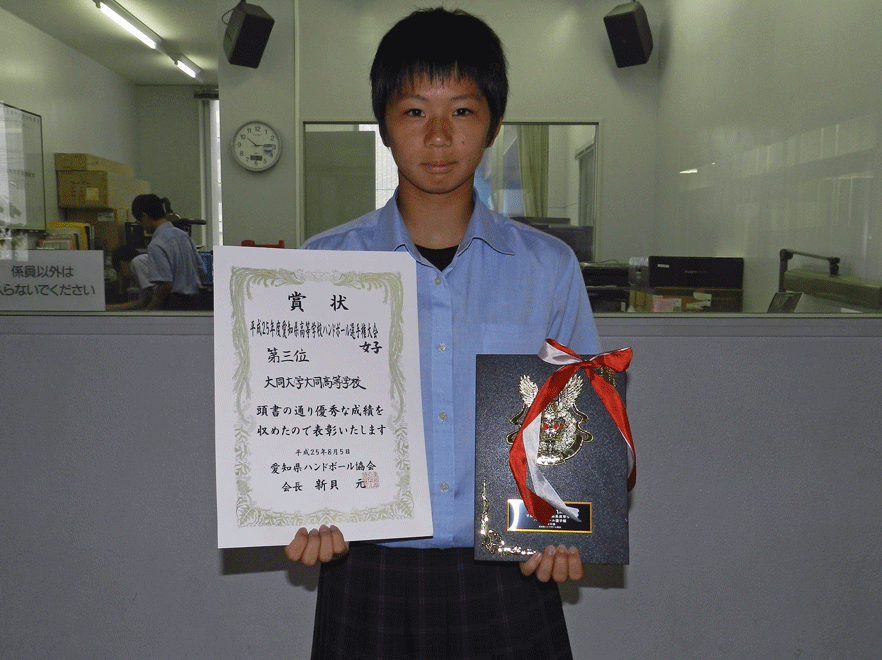 係員以外は
入らないでください
賞状
平成25年度愛知県高等学校ハンドボール選手権大会
女子
第三位
大同大学大同高等学校
頭書の通り優秀な成績を
収めたので表彰いたします
平成25年8月5日
愛知県ハンドボール協会
会長 新貝 元